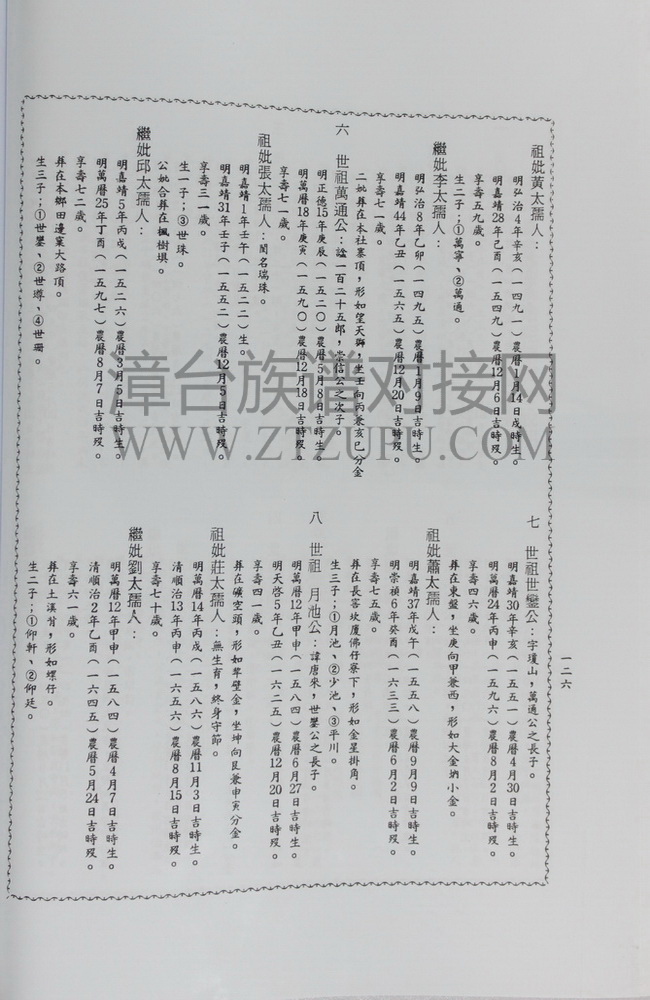 祖妣黃太孺人：
明弘治4年辛亥（一四九一）農曆1月14日戌時生。
明嘉靖28年己酉（一五四九）農曆12月6日吉時歿。
享壽五九歲。
生二子；①萬寧、②萬通。
繼妣李太孺人：
明弘治8年乙卯（一四九五）農曆1月9日吉時生。
明嘉靖44年乙丑（一五六五）農曆12月20日吉時歿。
享壽七一歲。
二妣葬在本社寨頂，形如望天獅，坐壬向丙兼亥巳分金
六　世祖萬通公：諡一百二十五郎，崇信公之次子。
明正德15年庚辰（一五二〇）農曆5月8日吉時生。
明萬曆18年庚寅（一五九〇）農曆12月18日吉時歿。
享壽七一歲。
祖妣張太孺人：閨名瑞珠。
明嘉靖1年壬午（一五二二）生。
明嘉靖31年壬子（一五五二）農曆12月5日吉時歿。
享壽三一歲。
生一子；③世珠。
公妣合葬在楓樹垻。
繼妣邱太孺人：
明嘉靖5年丙戌（一五二六）農曆3月5日吉時生。
明萬曆25年丁酉（一五九七）農曆8月7日吉時歿。
享壽七二歲。
葬在本鄉田邊窠大路頂。
生三子；①世鑾、②世噂、④世珊。
七　世祖世鑾公：字瓊山，萬通公之長子。
明嘉靖30年辛亥（一五五一）農曆4月30日吉時生。
明萬曆24年丙申（一五九六）農曆8月2日吉時歿。
享壽四六歲。
葬在東盤，坐庚向甲兼酉，形如大金坋小金。
祖妣蕭太孺人：
明嘉靖37年戊午（一五五八）農曆9月9日吉時生。
明崇禎6年癸酉（一六三三）農曆6月2日吉時歿。
享壽七五歲。
葬在長窖坎廈佛仔寮下，形如金星掛角。
生三子；①月池、②少池、③平川。
八　世祖　月池公：諱唐來，世鑾公之長子。
明萬曆12年甲申（一五八四）農曆6月27日吉時生。
明天啓5年乙丑（一六二五）農曆12月20日吉時歿。
享壽四一歲。
葬在礦空頭，形如犂壁金，坐坤向艮兼申寅分金。
祖妣莊太孺人：無生育，終身守節。
明萬曆14年丙戌（一五八六）農曆11月3日吉時生。
清順治13年丙申（一六五六）農曆8月15日吉時歿。
享壽七十歲。
繼妣劉太孺人：
明萬曆12年甲申（一五八四）農曆4月7日吉時生。
清順治2年乙酉（一六四五）農曆5月24日吉時歿。
享壽六一歲。
葬在土溪背，形如螺仔。
生二子；①仰軒、②仰廷。
一二六
漳台族谱对接网
WWW.ZTZUPU.COM